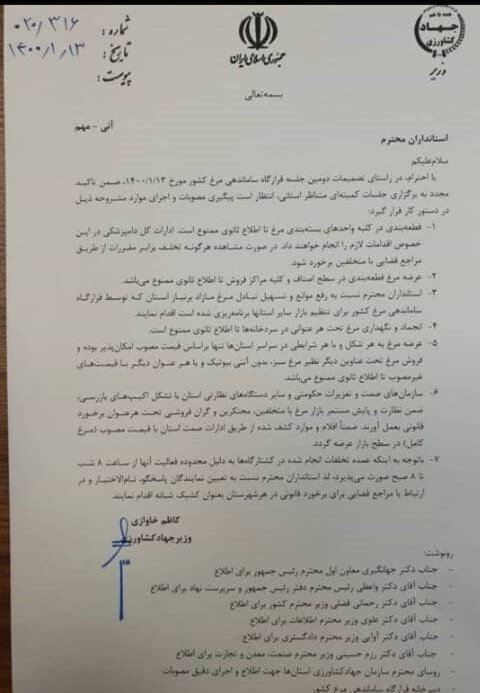 جهاد کشاورزی
وزیر
جمهوری اسلامی ایران
شماره : ۰۲۰/۳۱۶
تاریخ : ۱۴۰۰/۱/۱۳
پیوست:
بسمه‌تعالی
آنی - مهم
استانداران محترم
سلام‌علیکم
با احترام، در راستای تصمیمات دومین جلسه قرارگاه ساماندهی مرغ کشور مورخ ۱۴۰۰/۱/۱۳، ضمن تاکید
مجدد به برگزاری جلسات کمیته‌ای متناظر استانی، انتظار است پیگیری مصوبات و اجرای موارد مشروحه ذیل
در دستور کار قرار گیرد:
۱- قطعه‌بندی در کلیه واحدهای بسته‌بندی مرغ تا اطلاع ثانوی ممنوع است. ادارات کل دامپزشکی در این
خصوص اقدامات لازم را انجام خواهند داد. در صورت مشاهده هرگونه تخلف برابر مقررات از طریق
مراجع قضایی با متخلفین برخورد شود.
۲- عرضه مرغ قطعه‌بندی در سطح اصناف و کلیه مراکز فروش تا اطلاع ثانوی ممنوع می‌باشد.
۳- استانداران محترم نسبت به رفع موانع و تسهیل تبادل مرغ مازاد برنیاز استان که توسط قرارگاه
ساماندهی مرغ کشور برای تنظیم بازار سایر استانها برنامه‌ریزی شده است اقدام نمایند.
۴- انجماد و نگهداری مرغ تحت هر عنوانی در سردخانه‌ها تا اطلاع ثانوی ممنوع است.
۵- عرضه مرغ به هر شکل و با هر شرایطی در سراسر استان‌ها تنها براساس قیمت مصوب امکان‌پذیر بوده و
فروش مرغ تحت عناوین دیگر نظیر مرغ سبز، بدون آنتی بیوتیک و یا هر عنوان دیگر با قیمت‌های
غیرمصوب تا اطلاع ثانوی ممنوع می‌باشد.
۶- سازمان‌های صمت و تعزیرات حکومتی و سایر دستگاه‌های نظارتی استان با تشکل اکیپ‌های بازرسی،
ضمن نظارت و پایش مستمر بازار مرغ با متخلفین، محتکرین و گران فروشی تحت هرعنوان برخورد
قانونی بعمل آورند. ضمناً اقلام و موارد کشف شده از طریق ادارات صمت استان با قیمت مصوب (مرغ
کامل) در سطح بازار عرضه گردد.
۷- باتوجه به اینکه عمده تخلفات انجام شده در کشتارگاه‌ها به دلیل محدوده فعالیت آنها از ساعت ۸ شب
تا ۸ صبح صورت می‌پذیرد، لذ استانداران محترم نسبت به تعیین نمایندگان پاسخگو، تام‌الاختیار و در
ارتباط با مراجع قضایی برای برخورد قانونی در هرشهرستان بعنوان کشیک شبانه اقدام نمایند.
کاظم خاوازی
وزیرجهادکشاورزی
رونوشت
- جناب آقای دکتر جهانگیری معاون اول محترم رئیس جمهور برای اطلاع
- جناب آقای دکتر واعظی رئیس محترم دفتر رئیس جمهور و سرپرست نهاد برای اطلاع
- جناب آقای دکتر رحمانی فضلی وزیر محترم کشور برای اطلاع
- جناب آقای دکتر علوی وزیر محترم اطلاعات برای اطلاع
- جناب آقای دکتر آوایی وزیر محترم دادگستری برای اطلاع
- جناب آقای دکتر رزم حسینی وزیر محترم صنعت، معدن و تجارت برای اطلاع
- روسای محترم سازمان جهادکشاورزی استان‌ها جهت اطلاع و اجرای دقیق مصوبات
- دبیرخانه قرارگاه ساماندهی مرغ کشور